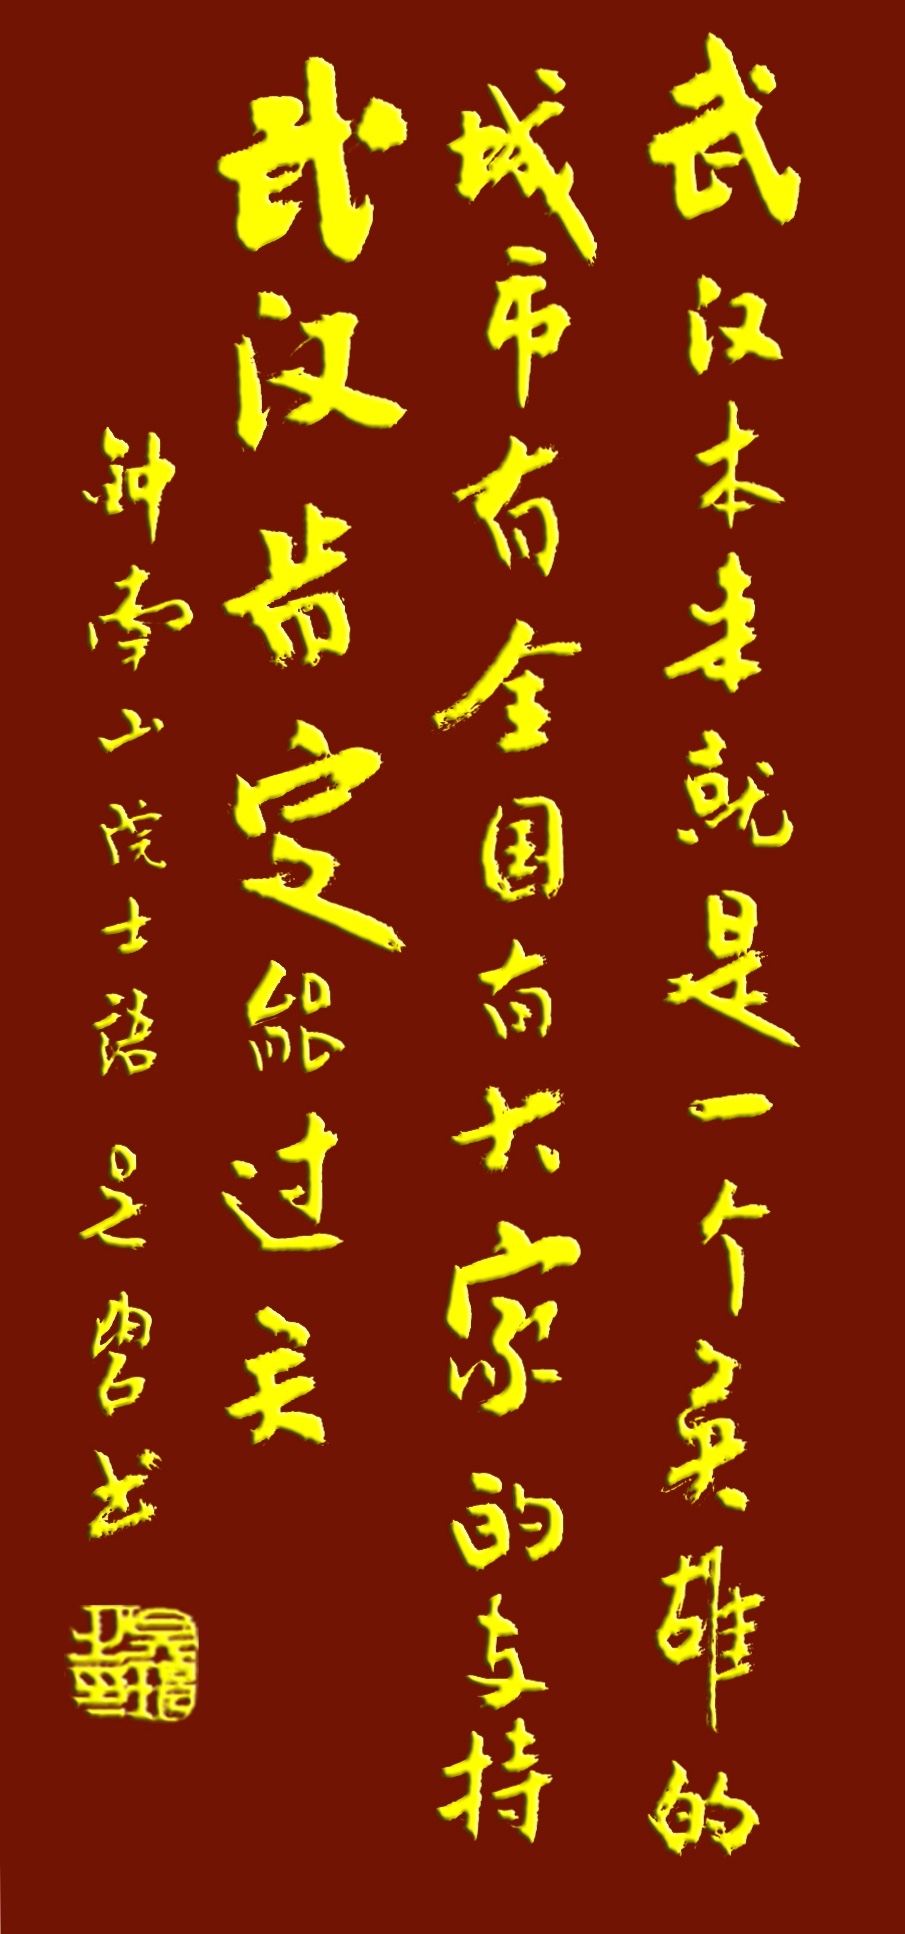 武汉本来就是一个英雄的
城市有全国有大家的支持
武汉肯定能过关
钟南山院士語 是 书